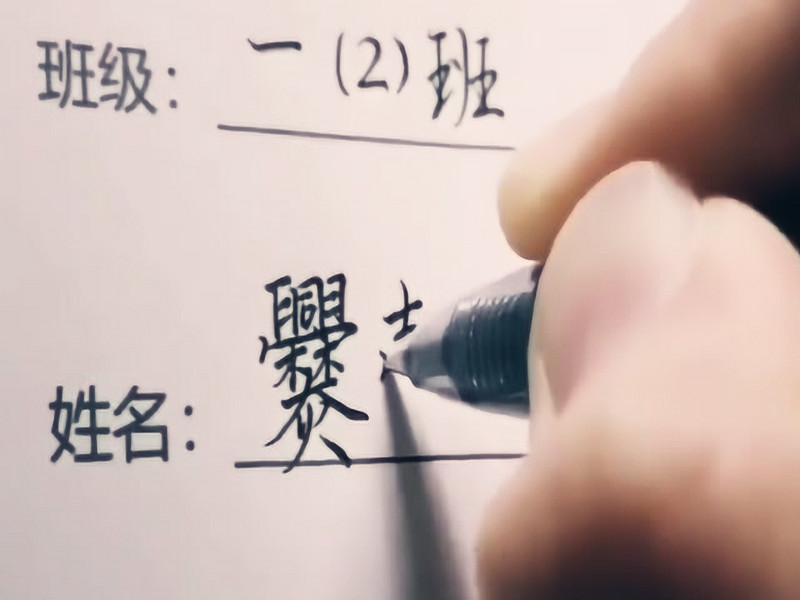 班级：一（2）班
姓名：爨士